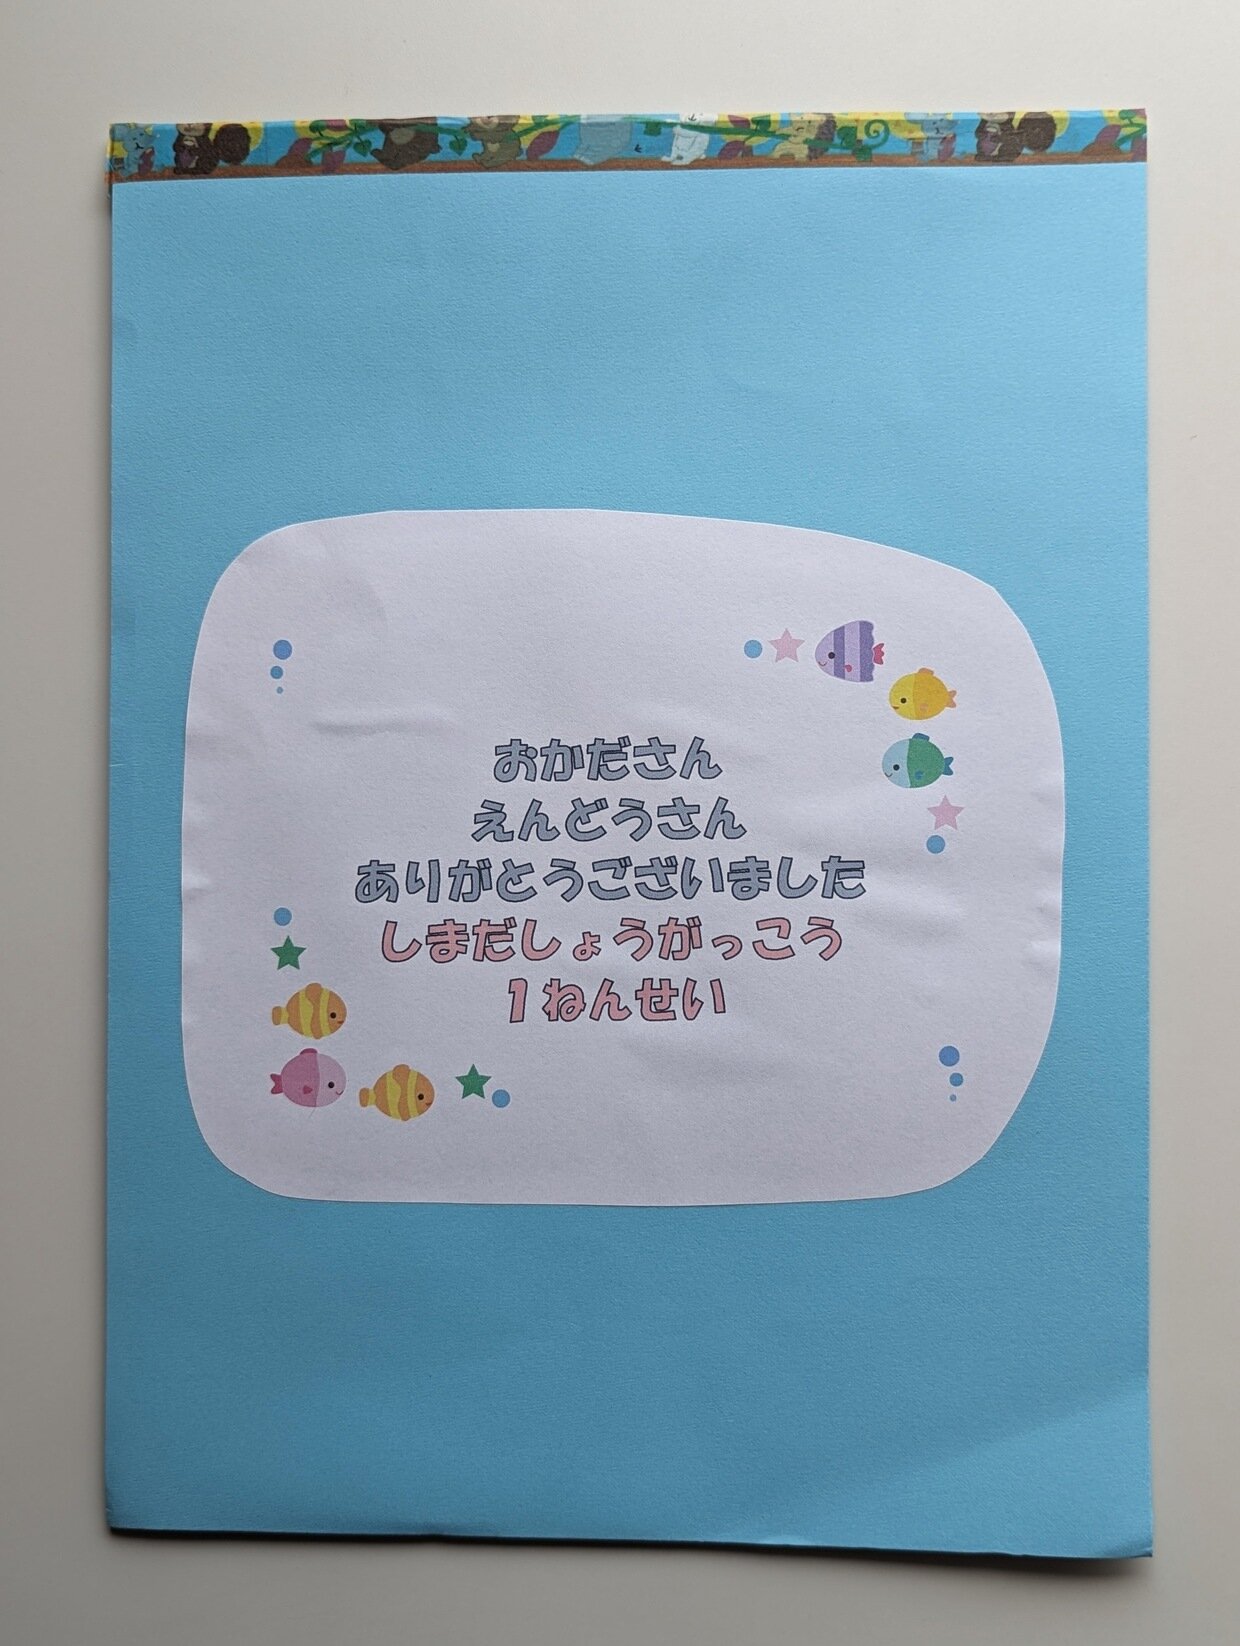 おかださん
えんどうさん
ありがとうございました
しまだしょうがっこう
1ねんせい